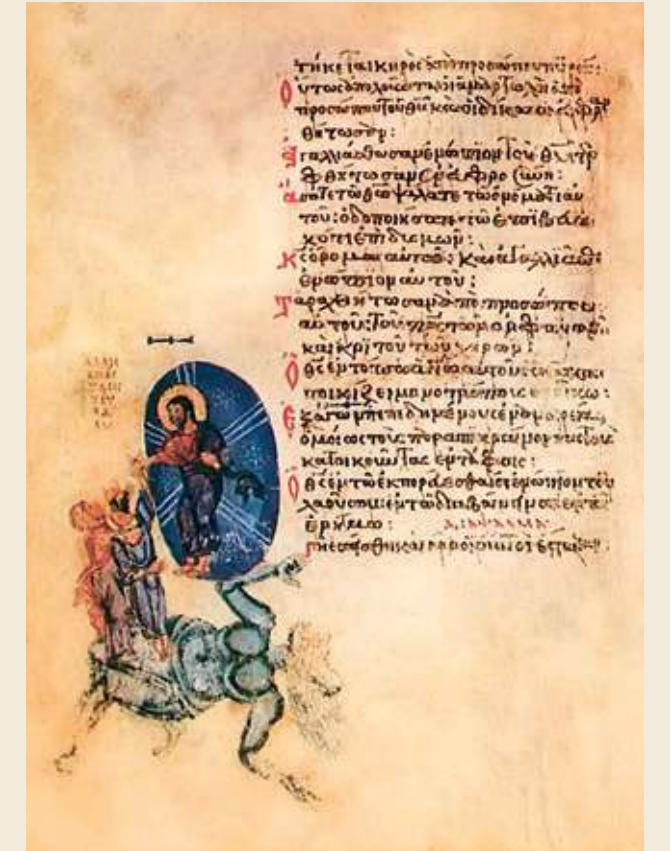 τήκεται κηρὸς ἀπὸ προσώπου πυρός:
Οὕτως ἀπολοῦνται οἱ ἁμαρτωλοὶ ἀπὸ
προσώπου τοῦ θυ κ οἱ δίκαιοι εὐφραν
θήτωσαν:
Ἀγαλλιάσθωσαν ἐνώπιον τοῦ θυ τερ
φθήτωσαν ἐν εὐφροσύνη:
ἄσατε τῶ θω ψάλατε τῶ ὀνόματι αὐ
τοῦ: ὁδοποιήσατε τῶ ἐπιβεβη
κότι ἐπὶ δυσμῶν:
Κς ὄνομα αὐτοῦ: καὶ ἀγαλλιᾶσθε
ἐνώπιον αὐτοῦ:
Ταραχθήτωσαν ἀπὸ προσώπου
αὐτοῦ: τοῦ πρς τῶν ὀρφανῶν
καὶ κριτοῦ τῶν χηρῶν:
Ὁ θς ἐν τόπω ἁγίω αὐτοῦ: ὁ θς κατοι
κίζει μονοτρόπους ἐν οἴκω:
Ἐξάγων πεπεδημένους ἐν
ὁμοίως τοὺς παραπικραίνοντας τοὺς
κατοικοῦντας ἐν τάφοις:
Ὁ θς ἐν τῶ ἐκπορεύεσθαί σε ἐνώπιον τοῦ
λαοῦ σου: ἐν τῶ διαβαίνειν σε ἐν τῆ
ἐρήμω: ΔΙΑΨΑΛΜΑ
Γῆ ἐσείσθη καὶ γὰρ οἱ οὐρανοὶ ἔσταξαν